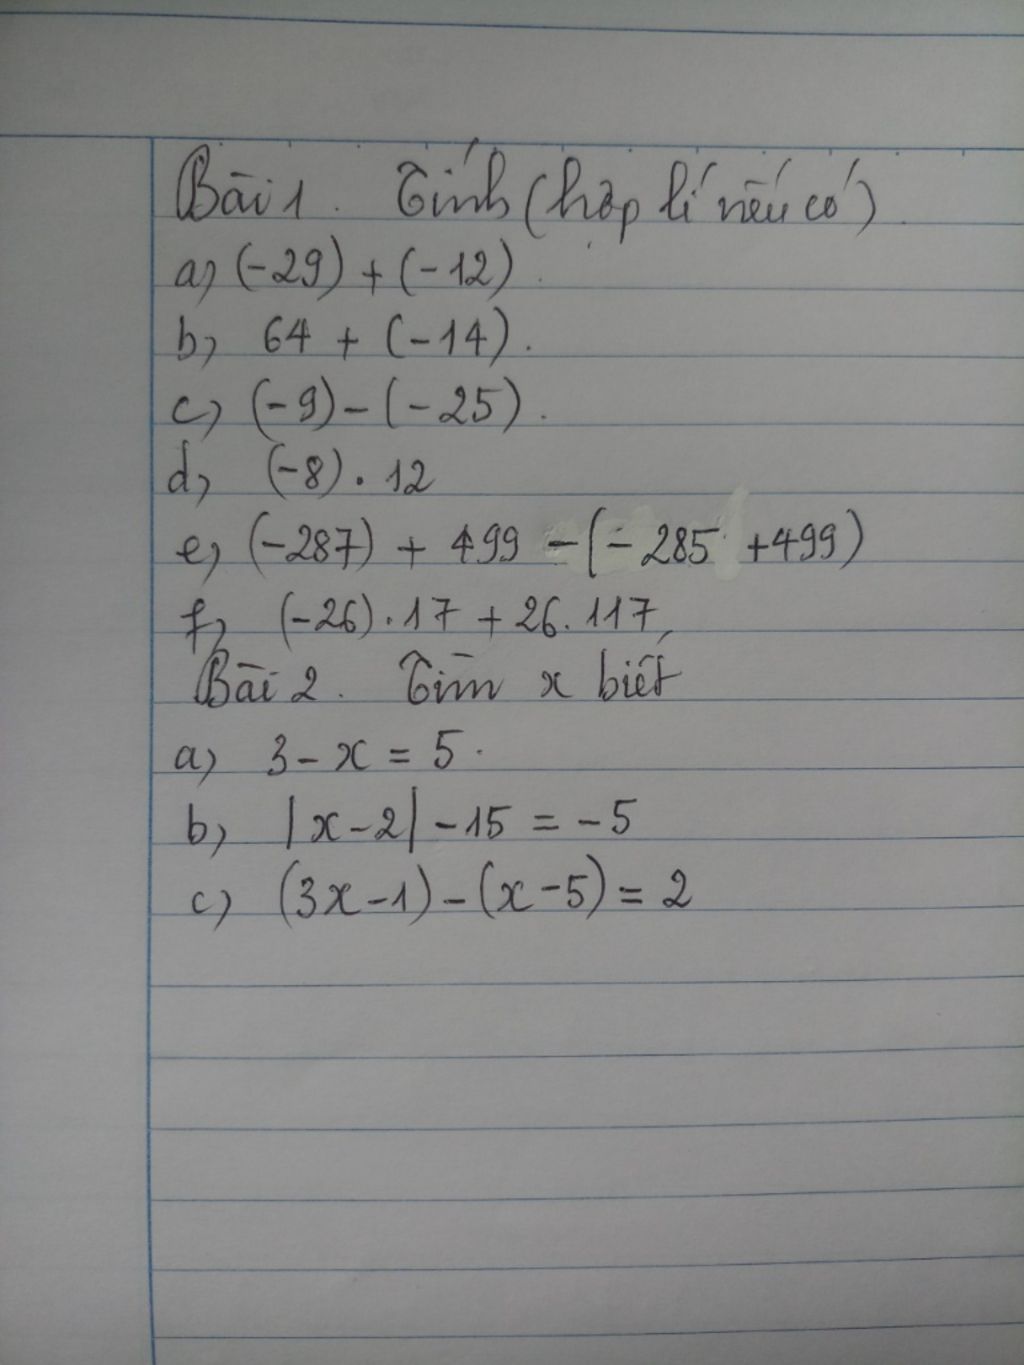 Bài 1. Tính (hợp lí nếu có).
a, (-29) + (-12).
b, 64 + (-14).
c, (-9) - (-25).
d, (-8) . 12
e, (-287) + 499 - (-285 +499)
f, (-26) . 17 + 26. 117
Bài 2. Tìm x biết
a, 3 - x = 5.
b, |x-2| -15 = -5
c, (3x-1) - (x-5) = 2